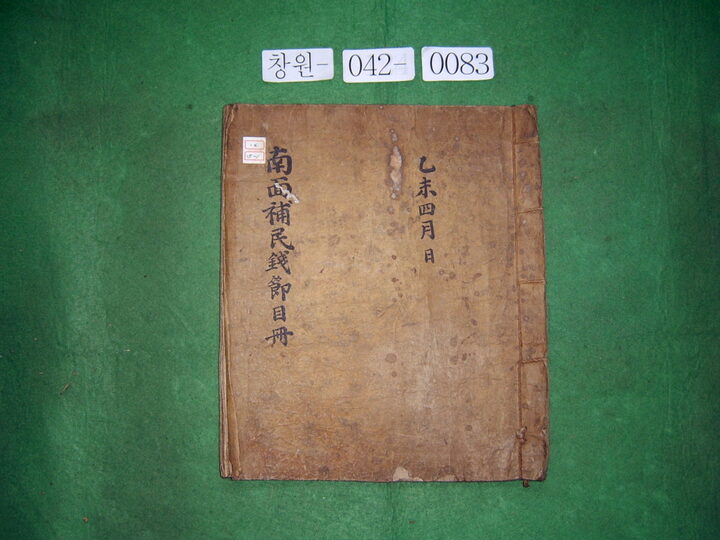 창원-042-0083
乙未四月 日
南面補民錢節目冊